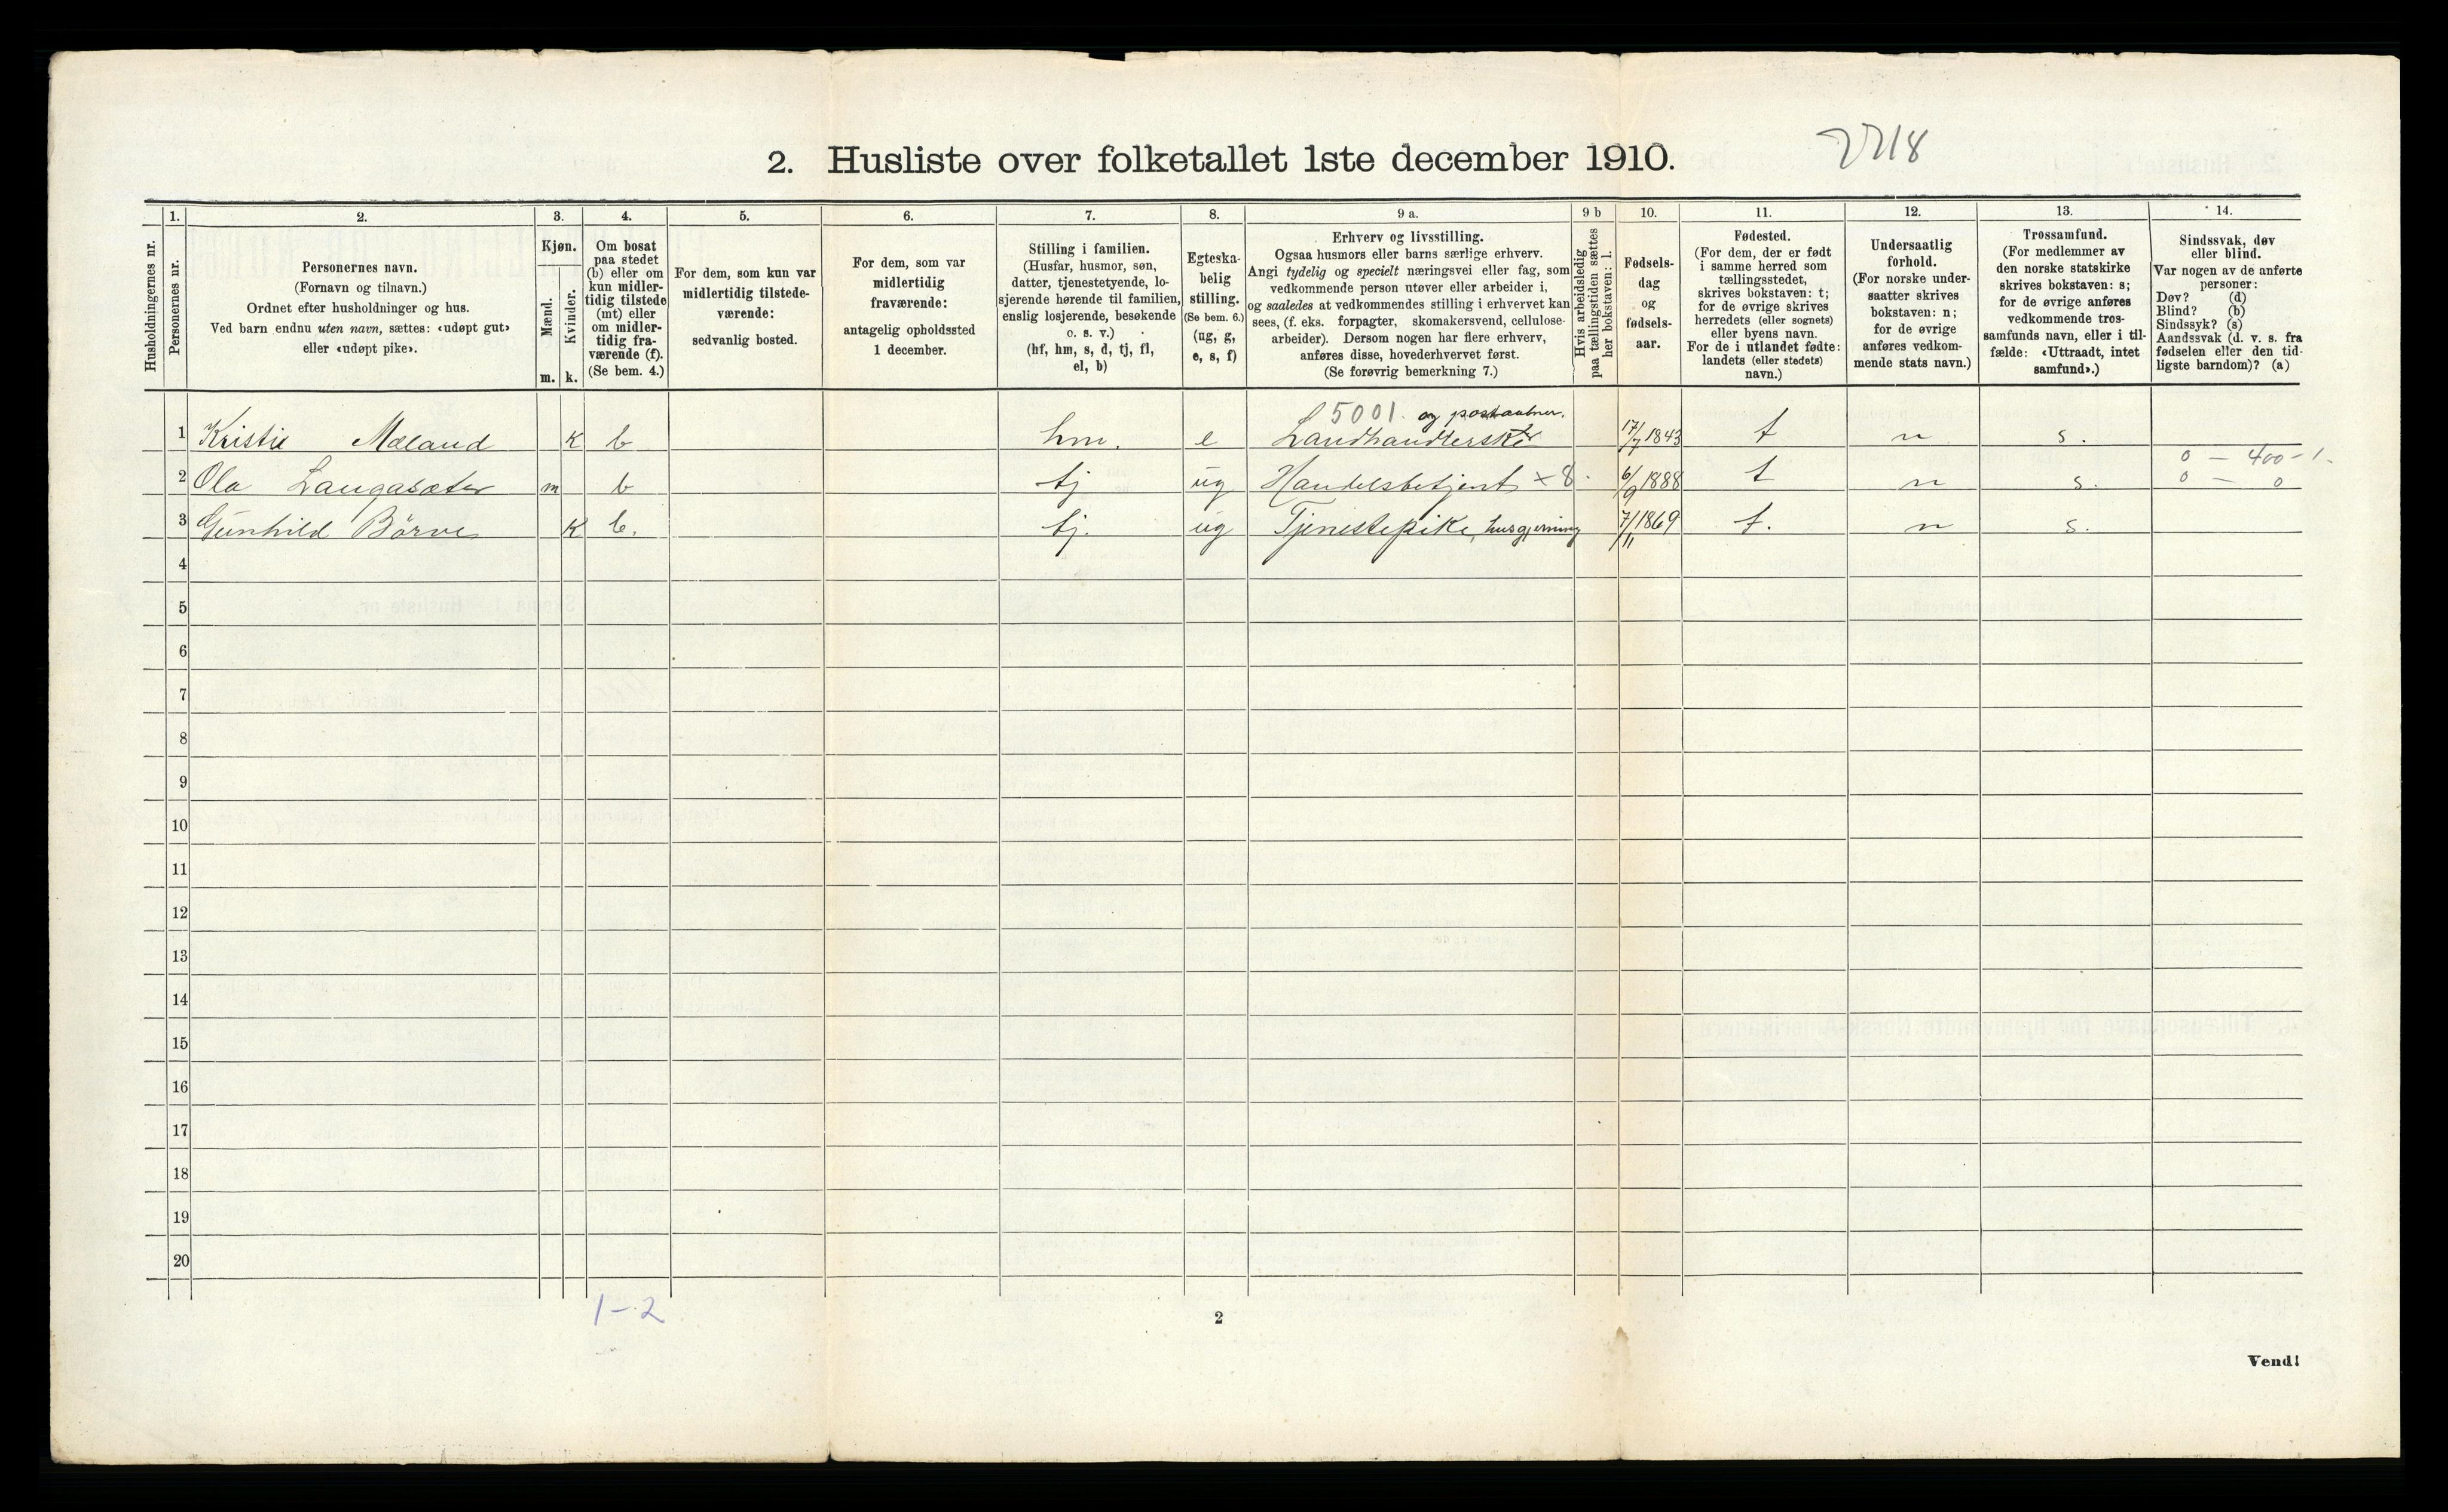 2. Husliste over folketallet 1ste december 1910.
2218
1. 2. 3. 4. 5. 6. 7. 8. 9 a. 9 b 10. 11. 12. 13. 14.
Husholdningernes nr.
Personernes nr.
Personernes navn.
(Fornavn og tilnavn.)
Ordnet efter husholdninger og hus.
Ved barn endnu uten navn, sættes: «udøpt gut»
eller «udøpt pike».
Kjøn.
Mænd.
Kvinder.
m. k.
Om bosat
paa stedet
(b) eller om
kun midler-
tidig tilstede
(mt) eller
om midler-
tidig fra-
værende (f).
(Se bem. 4.)
For dem, som kun var
midlertidig tilstede-
værende:
sedvanlig bosted.
For dem, som var
midlertidig
fraværende:
antagelig opholdssted
1 december.
Stilling i familien.
(Husfar, husmor, søn,
datter, tjenestetyende, lo-
sjerende hørende til familien,
enslig losjerende, besøkende
o. s. v.)
(hf, hm, s, d, tj, fl,
el, b)
Egteska-
belig
stilling.
(Se bem. 6.)
(ug, g,
e, s, f)
Erhverv og livsstilling.
Ogsaa husmors eller barns særlige erhverv.
Angi tydelig og specielt næringsvei eller fag, som
vedkommende person utøver eller arbeider i,
og saaledes at vedkommendes stilling i erhvervet kan
sees, (f. eks. forpagter, skomakersvend, cellulose-
arbeider). Dersom nogen har flere erhverv,
anføres disse, hovederhvervet først.
(Se forøvrig bemerkning 7.)
Hvis arbeidsledig
paa tællingstiden sættes
her bokstaven: l.
Fødsels-
dag
og
fødsels-
aar.
Fødested.
(For dem, der er født
i samme herred som
tællingsstedet,
skrives bokstaven: t;
for de øvrige skrives
herredets (eller sognets)
eller byens navn.
For de i utlandet fødte:
landets (eller stedets)
navn.)
Undersaatlig
forhold.
(For norske under-
saatter skrives
bokstaven: n;
for de øvrige
anføres vedkom-
mende stats navn.)
Trossamfund.
(For medlemmer av
den norske statskirke
skrives bokstaven: s;
for de øvrige anføres
vedkommende tros-
samfunds navn, eller i til-
fælde: «Uttraadt, intet
samfund».)
Sindssvak, døv
eller blind.
Var nogen av de anførte
personer:
Døv? (d)
Blind? (b)
Sindssyk? (s)
Aandssvak (d. v. s. fra
fødselen eller den tid-
ligste barndom)? (a)
5001. og postaabner.
1 Kristi Mæland k b hm. e Landhandlerske 17/7 1843 t n s.
0 - 400 - 1.
2 Ola Langasæter m b tj ug Handelsbetjent × 8 6/9 1888 t n s. 0 - 0
3 Gunhild Börve k b. tj. ug Tjenestepike, husgjerning 7/11 1869 t. n s.
4
5
6
7
8
9
10
11
12
13
14
15
16
17
18
19
20
1-2
2
Vend!